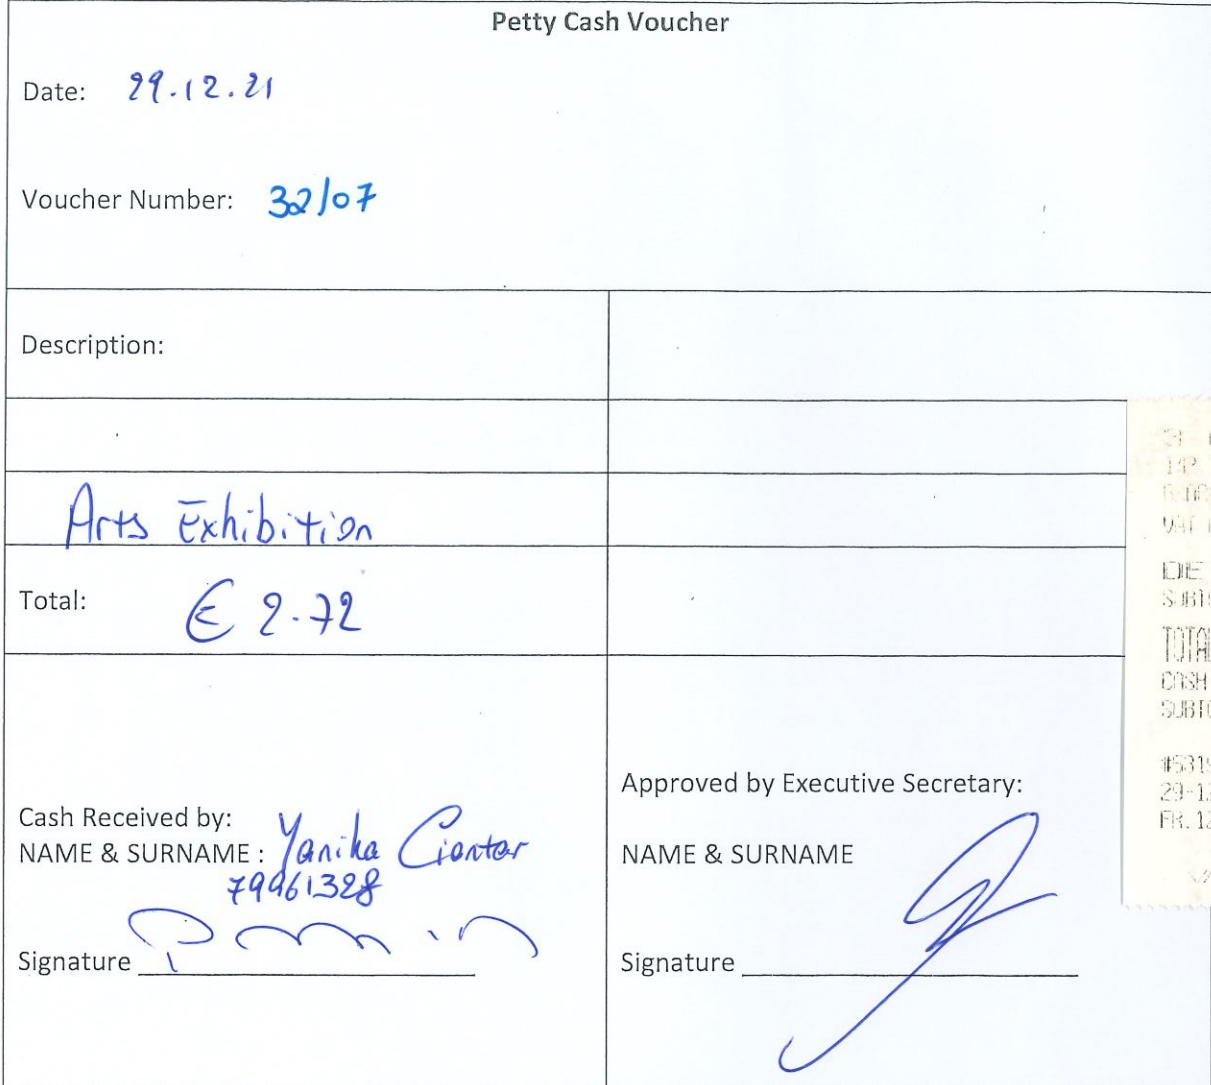 Petty Cash Voucher
Date: 29.12.21
Voucher Number: 32/07
Description:
Arts Exhibition
Total: € 2.72
Cash Received by:
NAME & SURNAME : Yanika Ciantar
79961328
Signature
Approved by Executive Secretary:
NAME & SURNAME
Signature
142
VAT
TOTAL
CASH
#531
29-12
FR.12